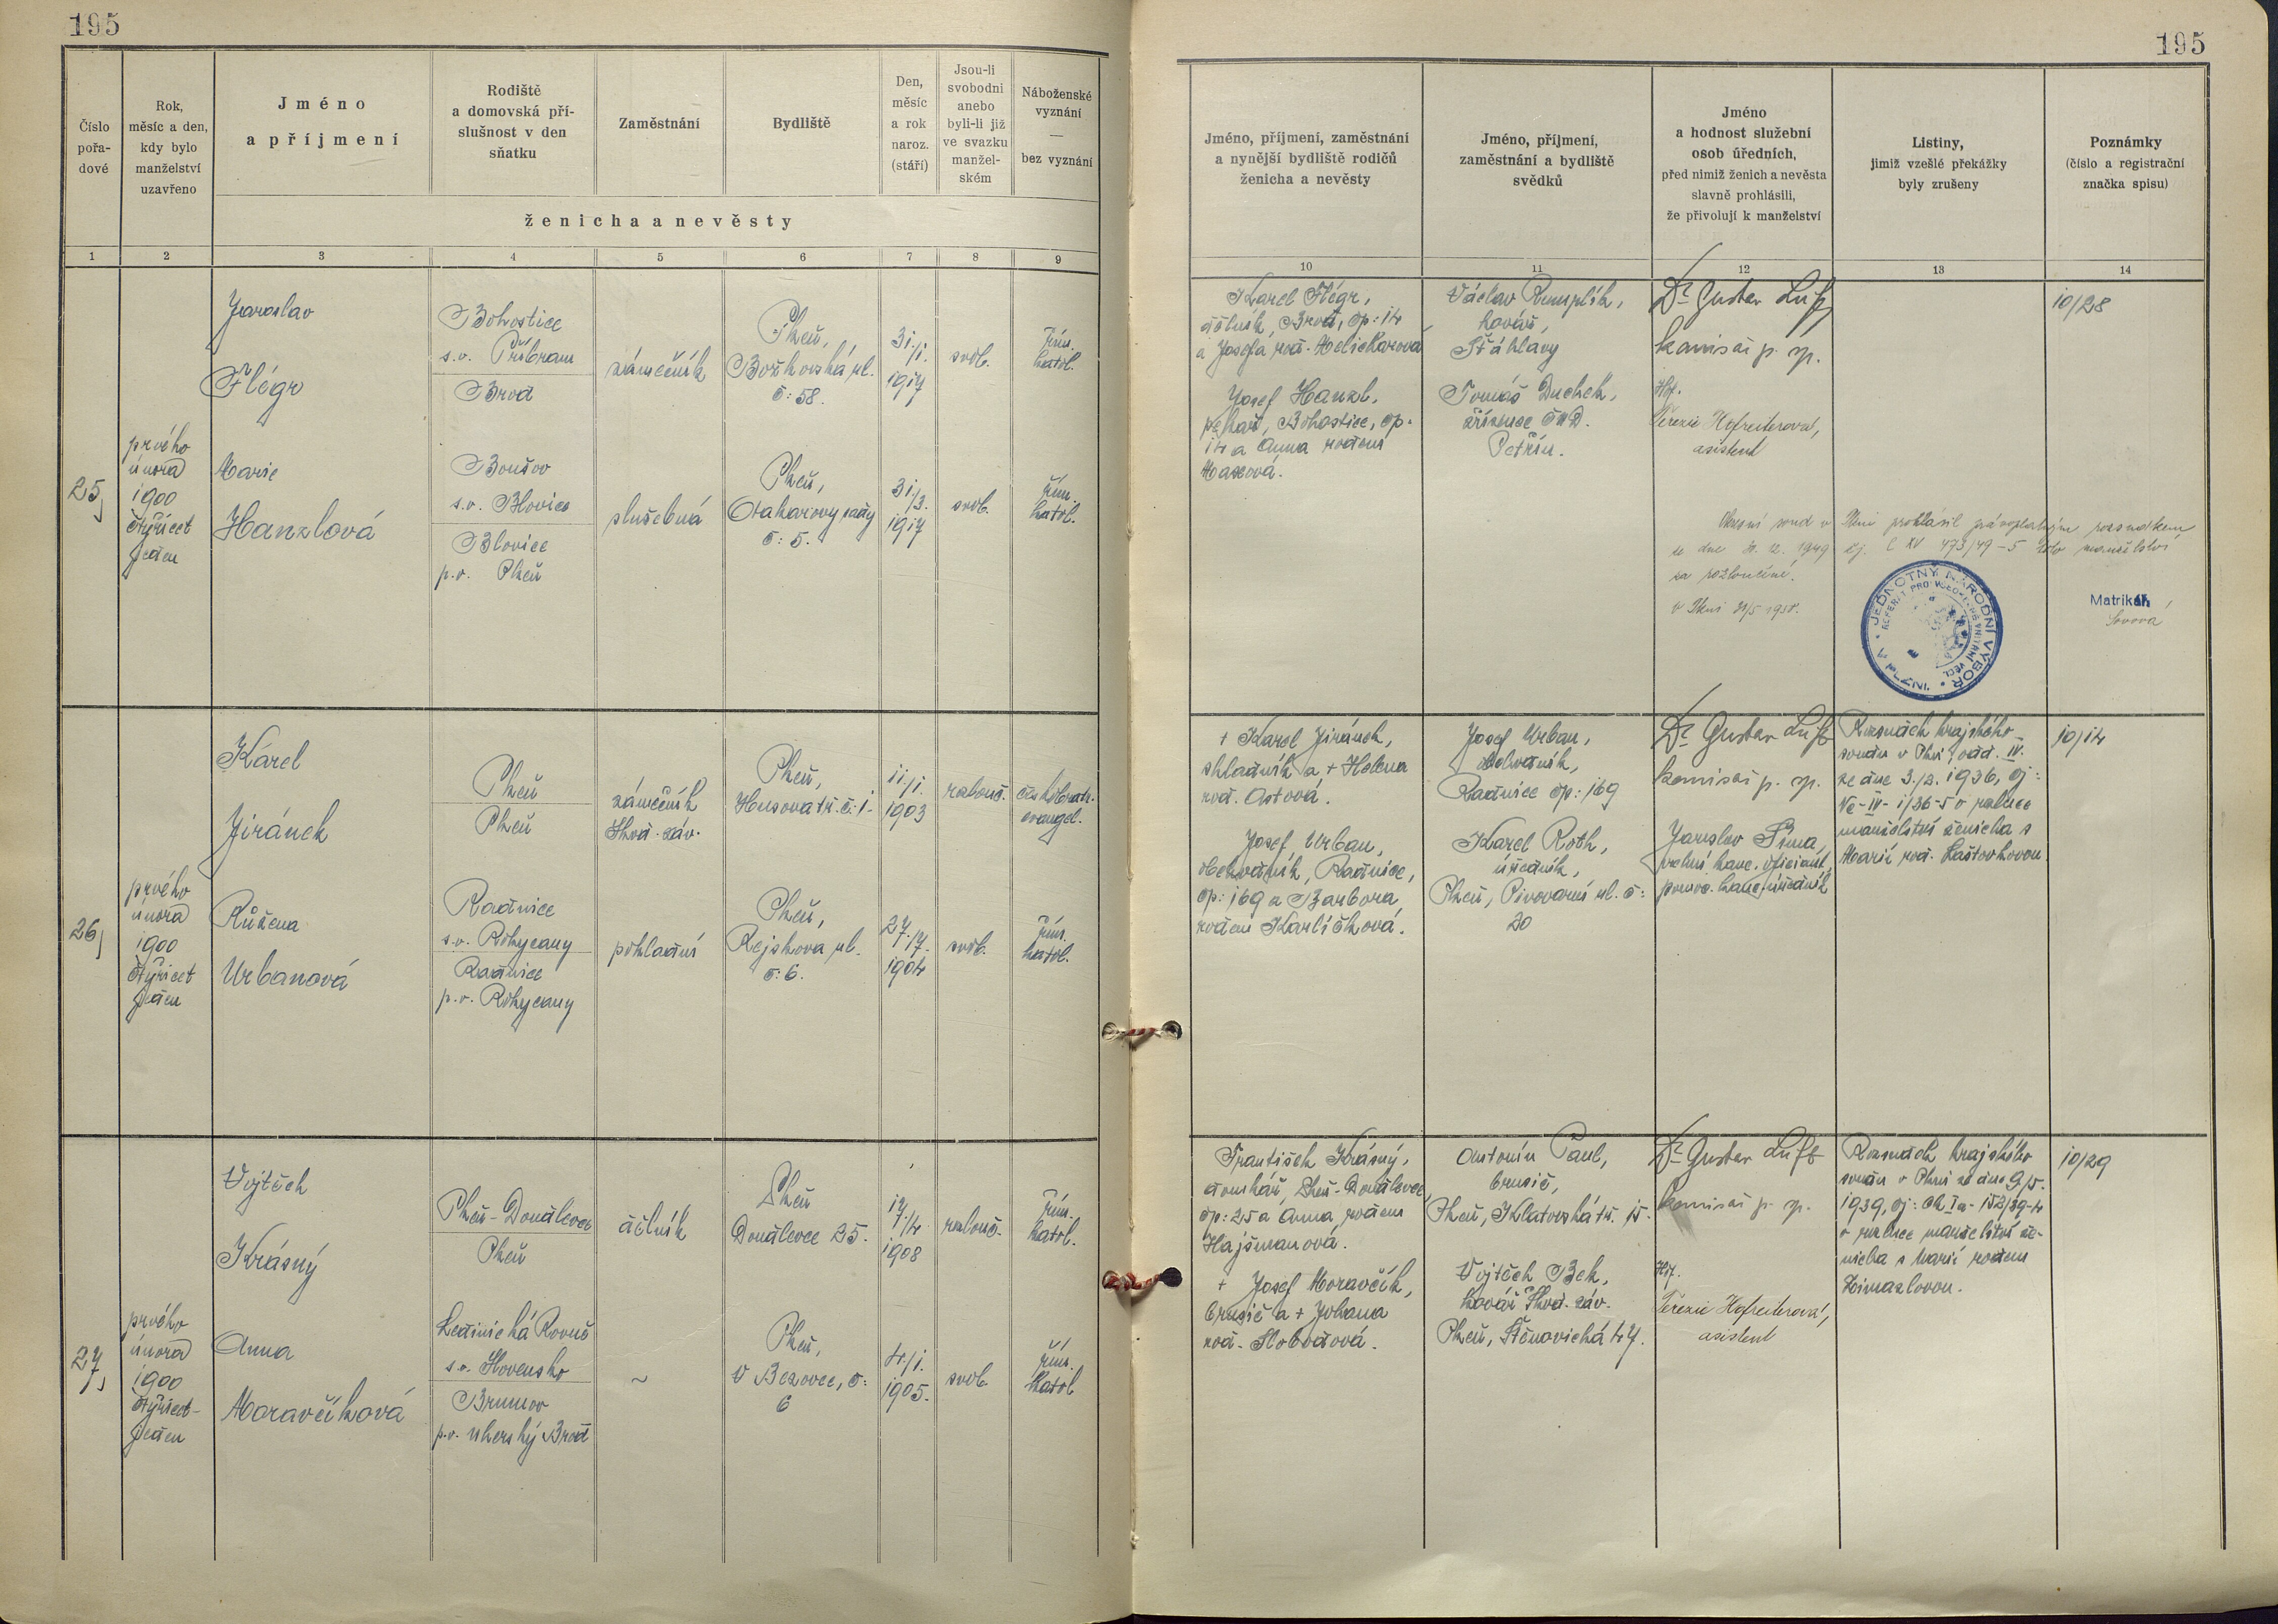 195
195
Číslo
pořa-
dové
Rok,
měsíc a den,
kdy bylo
manželství
uzavřeno
Jméno
a příjmení
Rodiště
a domovská pří-
slušnost v den
sňatku
Zaměstnání
Bydliště
Den,
měsíc
a rok
naroz.
(stáří)
Jsou-li
svobodni
anebo
byli-li již
ve svazku
manžel-
ském
Náboženské
vyznání
—
bez vyznání
ženicha a nevěsty
Jméno, příjmení, zaměstnání
a nynější bydliště rodičů
ženicha a nevěsty
Jméno, příjmení,
zaměstnání a bydliště
svědků
Jméno
a hodnost služební
osob úředních,
před nimiž ženich a nevěsta
slavně prohlásili,
že přivolují k manželství
Listiny,
jimiž vzešlé překážky
byly zrušeny
Poznámky
(číslo a registrační
značka spisu)
1 2 3 4 5 6 7 8 9
10 11 12 13 14
25,
prvého
února
1900
čtyřicet
jeden
Jaroslav
Flégr
Bohostice
s.o. Příbram
Brod
zámečník
Plzeň,
Božkovská ul.
č: 58.
31./1.
1917
svob.
řím.
katol.
Marie
Hanzlová
Boušov
s.o. Blovice
Blovice
p.o. Plzeň
služebná
Plzeň,
Otakarovy sady
č: 5.
31./3.
1917
svob.
řím.
katol.
Karel Flégr,
dělník, Brod, čp: 14
a Josefa roz. Melicharová
Josef Hanzl,
pekař, Bohostice, čp.
14 a Anna rozená
Václav Rumplík,
kovář,
Šťáhlavy
Tomáš Duchek,
zřízenec ČMD.
Petřín.
Dr. Gustav Luft
komisař p. sp.
Hof.
Terezie Hofreiterová,
asistent
10/28
Krajský soud v Plzni prohlásil právoplatným rozsudkem
ze dne 31. 12. 1949 čj. C XV 473/49-5 toto manželství
za rozloučené.
V Plzni
JEDNOTNÝ NÁRODNÍ VÝBOR
V PLZNI
Matrikář
26,
prvého
února
1900
čtyřicet
jeden
Karel
Jiránek
Plzeň
Plzeň
zámečník
Škod. záv.
Plzeň,
Husova tř. č: 1.
11./1.
1903
rozlouč.
českobratr.
evangel.
Růžena
Urbanová
Radnice
s.o. Rokycany
Radnice
p.o. Rokycany
pokladní
Plzeň,
Rejskova ul.
č: 6.
27./7.
1904
svob.
řím.
katol.
+ Karel Jiránek,
skladník a + Helena
roz. Astová.
Josef Urban,
obchodník, Radnice,
čp: 169 a Barbora
rozená Karlíčková.
Josef Urban,
obchodník,
Radnice čp: 169
Karel Roth,
úředník,
Plzeň, Pivovarní ul. č:
20
Dr. Gustav Luft
komisař p. sp.
Jaroslav Šíma,
vrchní kanc. oficiant,
pomoc. kanc. úředník
Rozsudek krajského
soudu v Plzni, odd. IV.
ze dne 3./2. 1936, čj:
Nc-IV-1/36-5 o rozluce
manželství ženicha s
Marií roz. Laštovkovou.
10/14
27,
prvého
února
1900
čtyřicet-
jeden
Vojtěch
Krásný
Plzeň-Doudlevce
Plzeň
dělník
Plzeň
Doudlevce 25.
17./4.
1908
rozlouč.
řím.
katol.
Anna
Moravčíková
Lednická Rovně
s.o. Slovensko
Brumov
p.o. Uherský Brod
~
Plzeň,
V Bezovce, č:
6
4./1.
1905.
svob.
řím.
katol.
František Krásný,
domkář, Plzeň-Doudlevce,
čp: 25 a Anna, rozená
Hajšmanová.
+ Josef Moravčík,
brusič a + Johana
roz. Slobodová.
Antonín Paul,
brusič,
Plzeň, Klatovská tř. 15.
Vojtěch Bek,
kovář Škod. záv.
Plzeň, Štěnovická 47.
Dr. Gustav Luft
komisař p. sp.
Hof.
Terezie Hofreiterová,
asistent
Rozsudek krajského
soudu v Plzni ze dne 9./5.
1939, čj: Ck Ia-152/39-4
o rozluce manželství že-
nicha s Marií rozenou
10/29